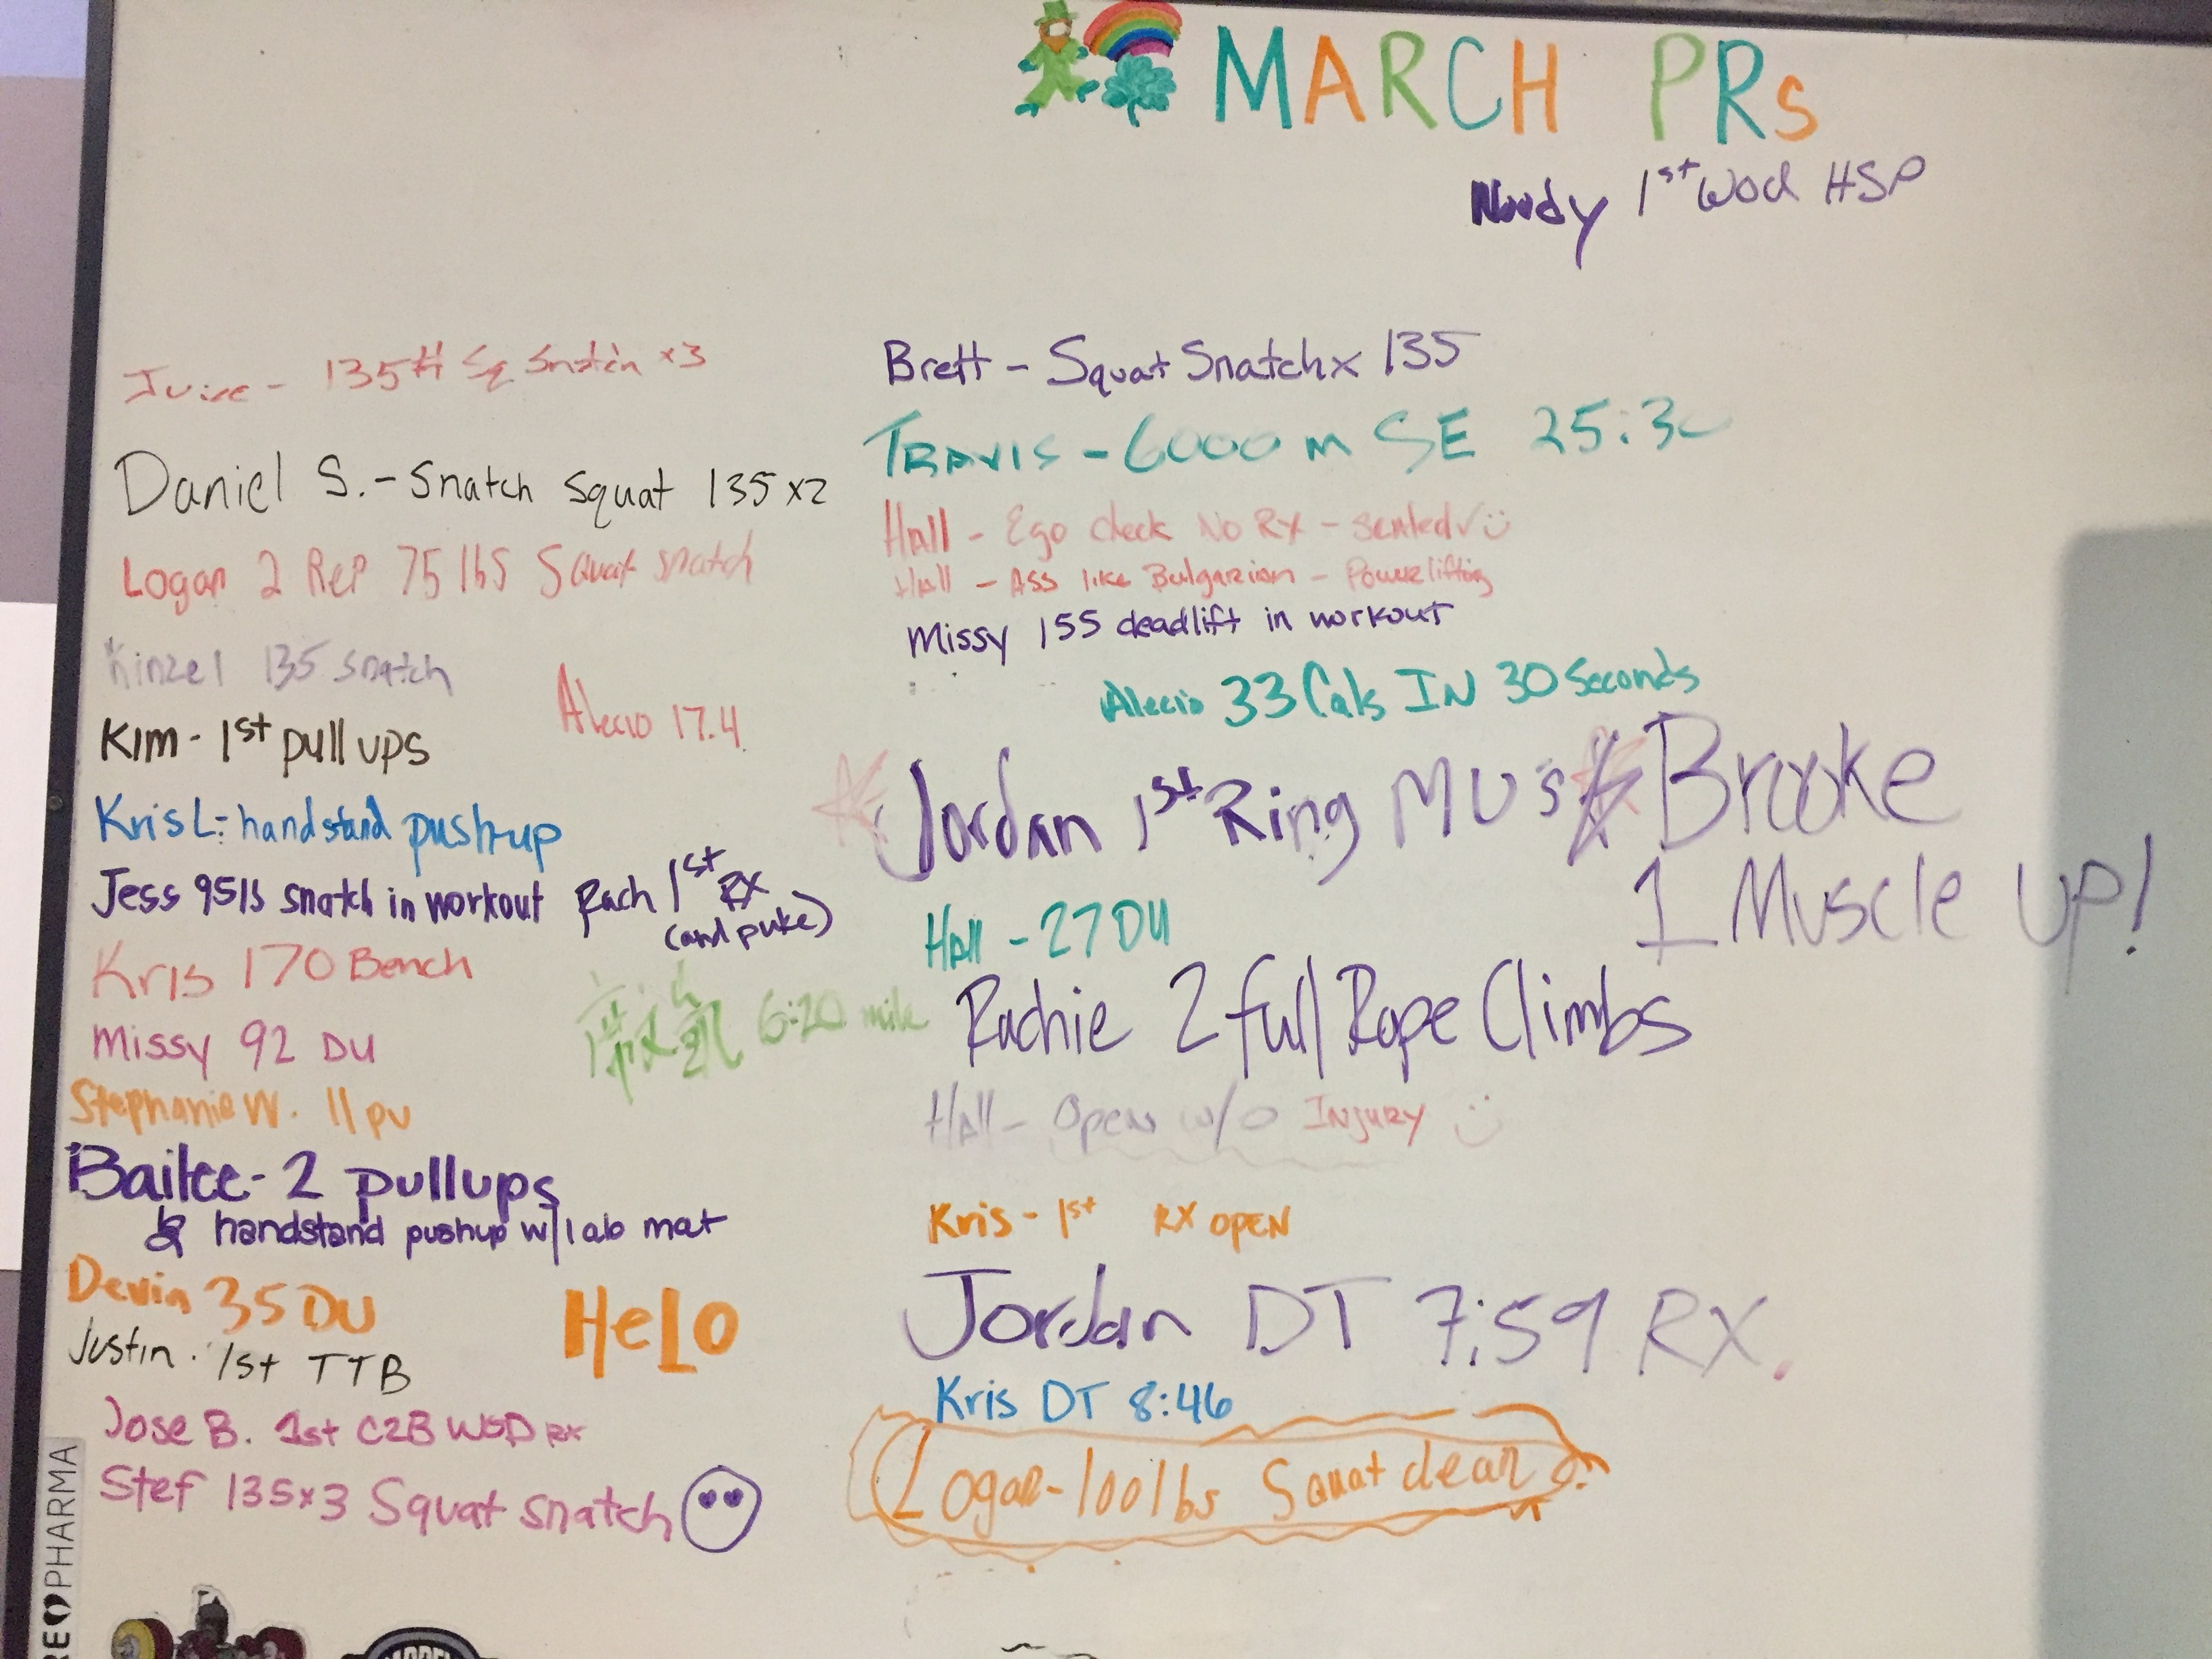 MARCH PRs
1st Wod HSP
135# Sq Snatch x3
Daniel S. - Snatch Squat 135 x2
Logan 2 Rep 75 lbs Squat snatch
Kinzel 135 snatch
Alecio 17.4
Kim - 1st pull ups
Kris L - handstand pushup
Jess 95lb snatch in workout
Rach 1st RX
(and puke)
Kris 170 Bench
Missy 92 DU
6:20 mile
Stephanie W. 11 pu
Bailee - 2 pullups
& handstand pushup w/1 ab mat
Devin 35 DU
HeLO
Justin. 1st TTB
Jose B. 1st C2B WOD RX
Stef 135x3 Squat snatch
Brett - Squat Snatch x 135
TRAVIS - 6000 m SE
Hall - Ego check No RX - scaled ✓
Hall - Ass like Bulgarian - Powerlifting
Missy 155 deadlift in workout
Alecio 33 Cals IN 30 Seconds
Jordan 1st Ring MU's
Brooke
1 Muscle UP!
Hall - 27 DU
Rachie 2 full Rope Climbs
Hall - Open w/o INJURY
Kris - 1st RX OPEN
Jordan DT 7:59 RX.
Kris DT 8:46
Logan - 100 lbs Squat clean
REPHARMA